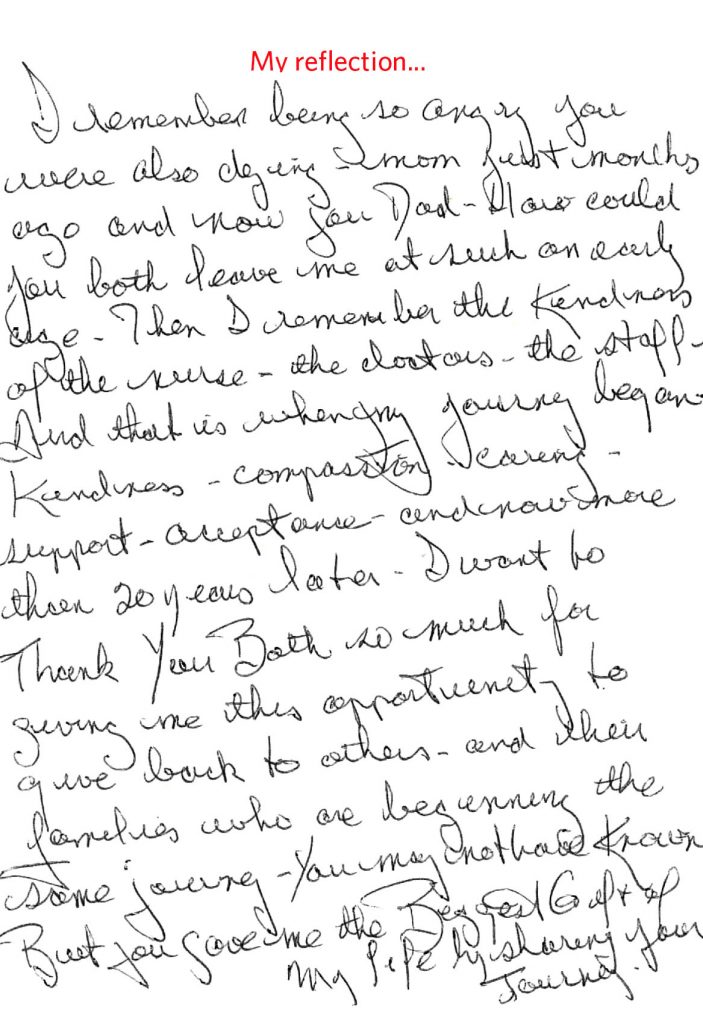 My reflection...
I remember being so angry you
were also dying - mom just months
ago and now you Dad - How could
you both leave me at such an early
age - Then I remember the Kindness
of the nurse - the doctors - the staff -
And that is when my journey began -
Kindness - compassion - caring -
support - acceptance - and now more
than 20 years later - I want to
Thank You Both so much for
giving me this opportunity to
give back to others - and their
families who are beginning the
same journey - You may not have Known
But you gave me the Biggest Gift of
my life by sharing your
Journey.